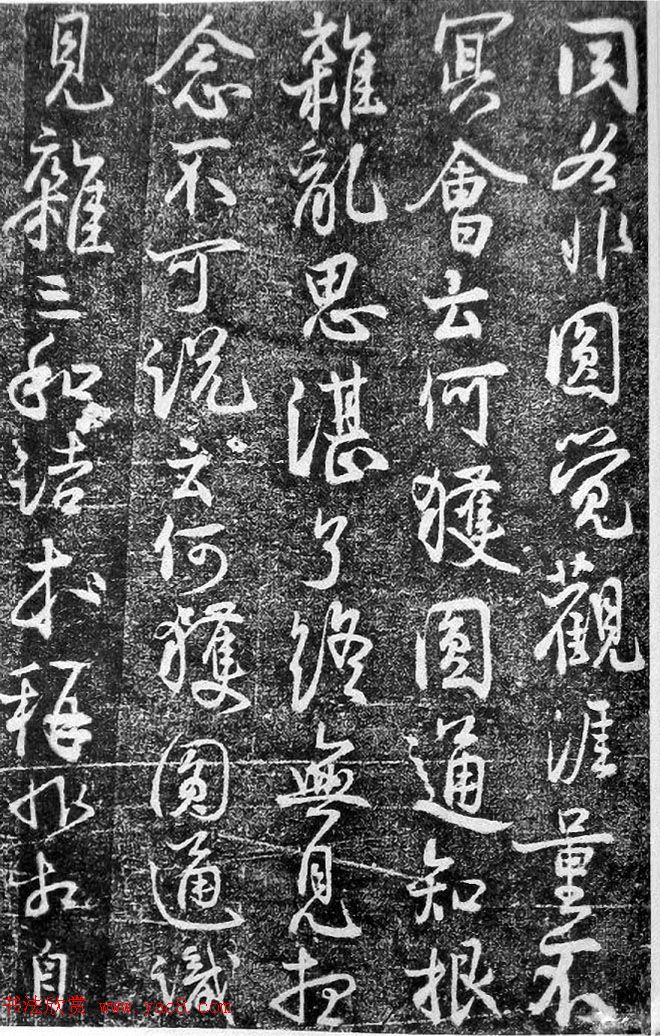 同各非圓覺觀涯量不
冥會云何獲圓通知根
雜亂思湛了終無見想
念不可脫云何獲圓通識
見雜三和詰本稱非相自
书法欣赏 www.yac8.com